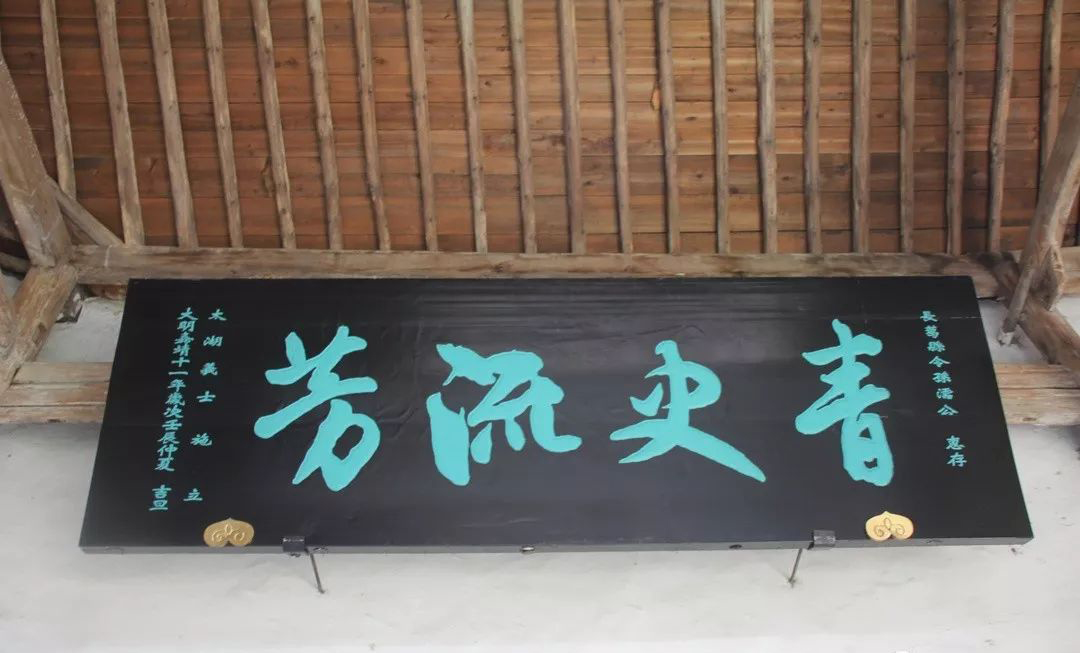 長葛縣令孫濡公 惠存
青史流芳
太湖義士 施 立
大明嘉靖十一年歲次壬辰仲夏 吉旦